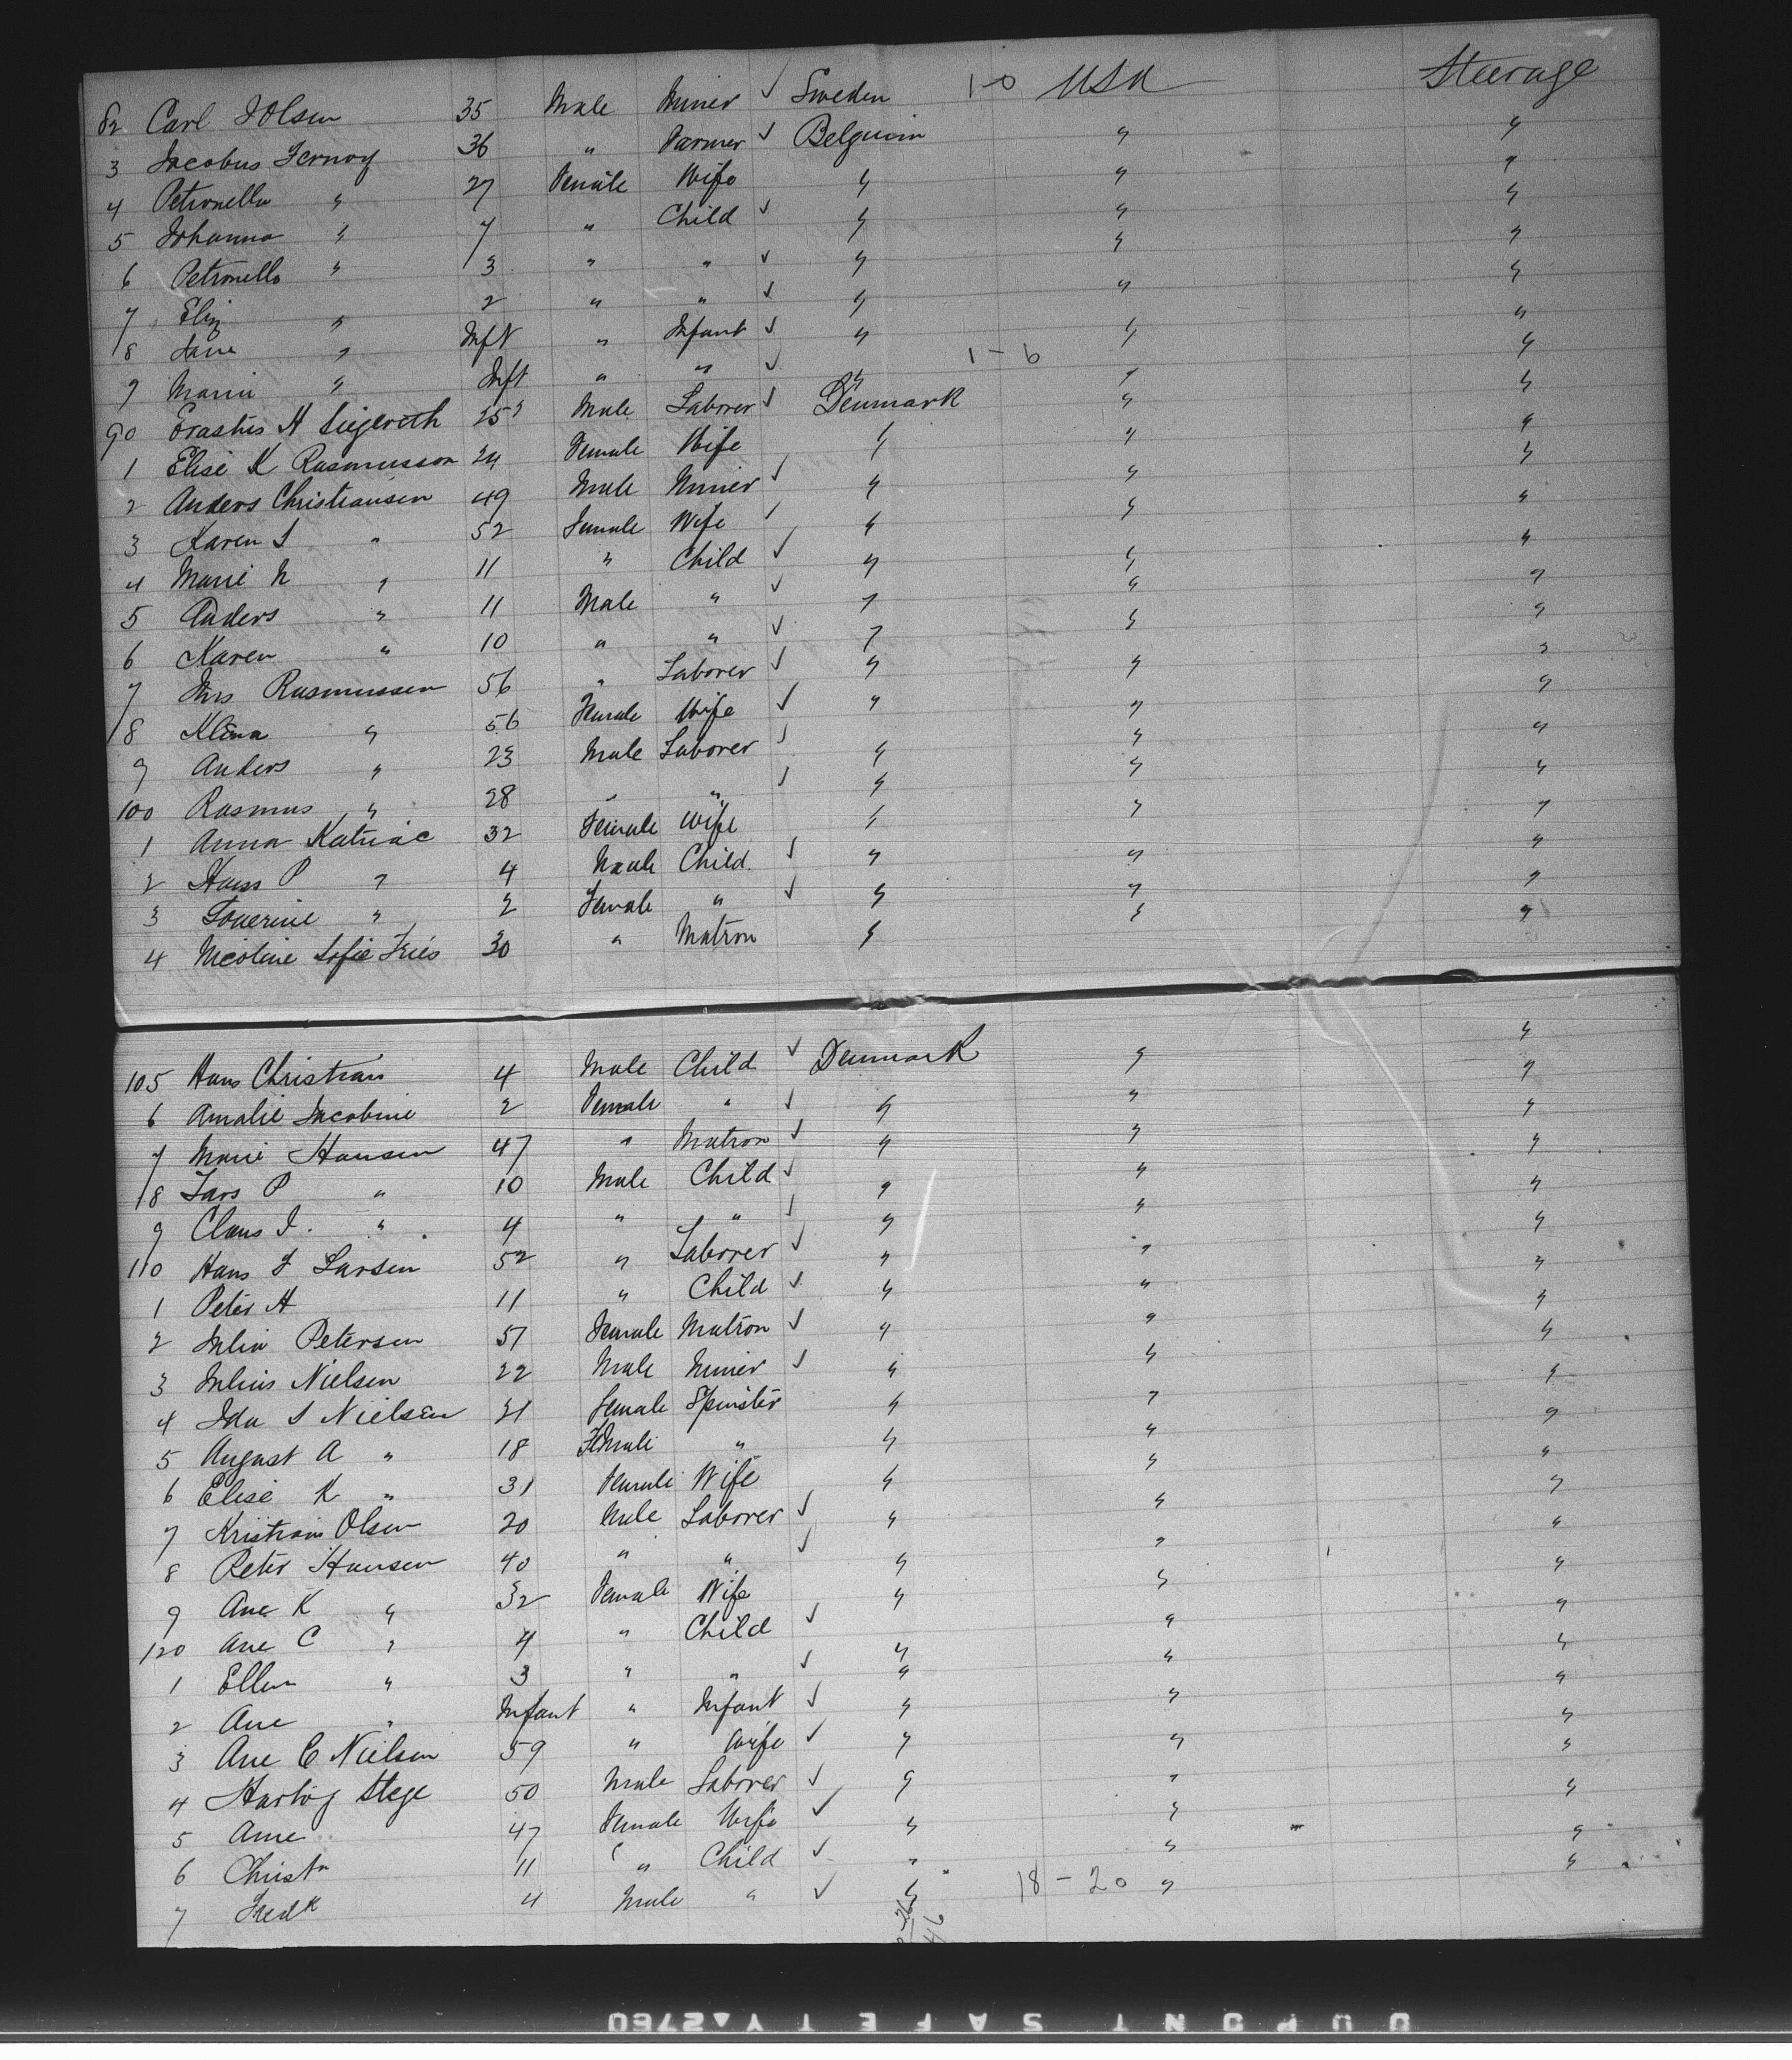 82 Carl J Olsen 35 Male Miner ✓ Sweden 1-0 USA Steerage
3 Jacobus Fernoy 36 " Farmer ✓ Belguim " "
4 Petronella " 27 Female Wife " " "
5 Johanna " 7 " Child ✓ " " "
6 Petronella " 3 " " ✓ " " "
7 Eliz " 2 " " ✓ " " "
8 Jane " Inft " Infant ✓ " " "
9 Marie " Inft " " ✓ " 1-6 " "
90 Erastus H 25 Male Laborer ✓ Denmark " "
1 Elise K Rasmusson 24 Female Wife " " "
2 Anders Christiansen 49 Male Miner ✓ " " "
3 Karen S " 52 Female Wife ✓ " " "
4 Marie N " 11 " Child ✓ " " "
5 Anders " 11 Male " ✓ " " "
6 Karen " 10 " " ✓ " " "
7 Jens Rasmussen 56 " Laborer ✓ " " "
8 Klena " 56 Female Wife ✓ " " "
9 Anders " 23 Male Laborer ✓ " " "
100 Rasmus " 28 " " ✓ " " "
1 Anna Katrine 32 Female Wife " " "
2 Hans P " 4 Male Child ✓ " " "
3 " 2 Female " ✓ " " "
4 Nicoline Sofie Friis 30 " Matron " " "
105 Hans Christian 4 Male Child ✓ Denmark " "
6 Amalie Jacobine 2 Female " ✓ " " "
7 Marie Hansen 47 " Matron ✓ " " "
8 Lars P " 10 Male Child ✓ " " "
9 Claus J. " 4 " " ✓ " " "
110 Hans J Larsen 52 " Laborer ✓ " " "
1 Peter H 11 " Child ✓ " " "
2 Julia Petersen 57 Female Matron ✓ " " "
3 Julius Nielsen 22 Male Miner ✓ " " "
4 Ida S Nielsen 21 Female Spinster " " "
5 August A " 18 Female " " " "
6 Elise K " 31 Female Wife " " "
7 Kristian Olsen 20 Male Laborer ✓ " " "
8 Peter Hansen 40 " " ✓ " " "
9 Ane K " 32 Female Wife " " "
120 Ane C " 4 " Child ✓ " " "
1 Ellen " 3 " " ✓ " " "
2 Ane " Infant " Infant ✓ " " "
3 Ane C Nielsen 59 " Wife ✓ " " "
4 Hartog Stege 50 Male Laborer ✓ " " "
5 Ane 47 Female Wife ✓ " " "
6 Christn 11 " Child ✓ " " "
7 Fredk 4 Male " ✓ " 18-20 " "
DUPONT SAFETY▲2760